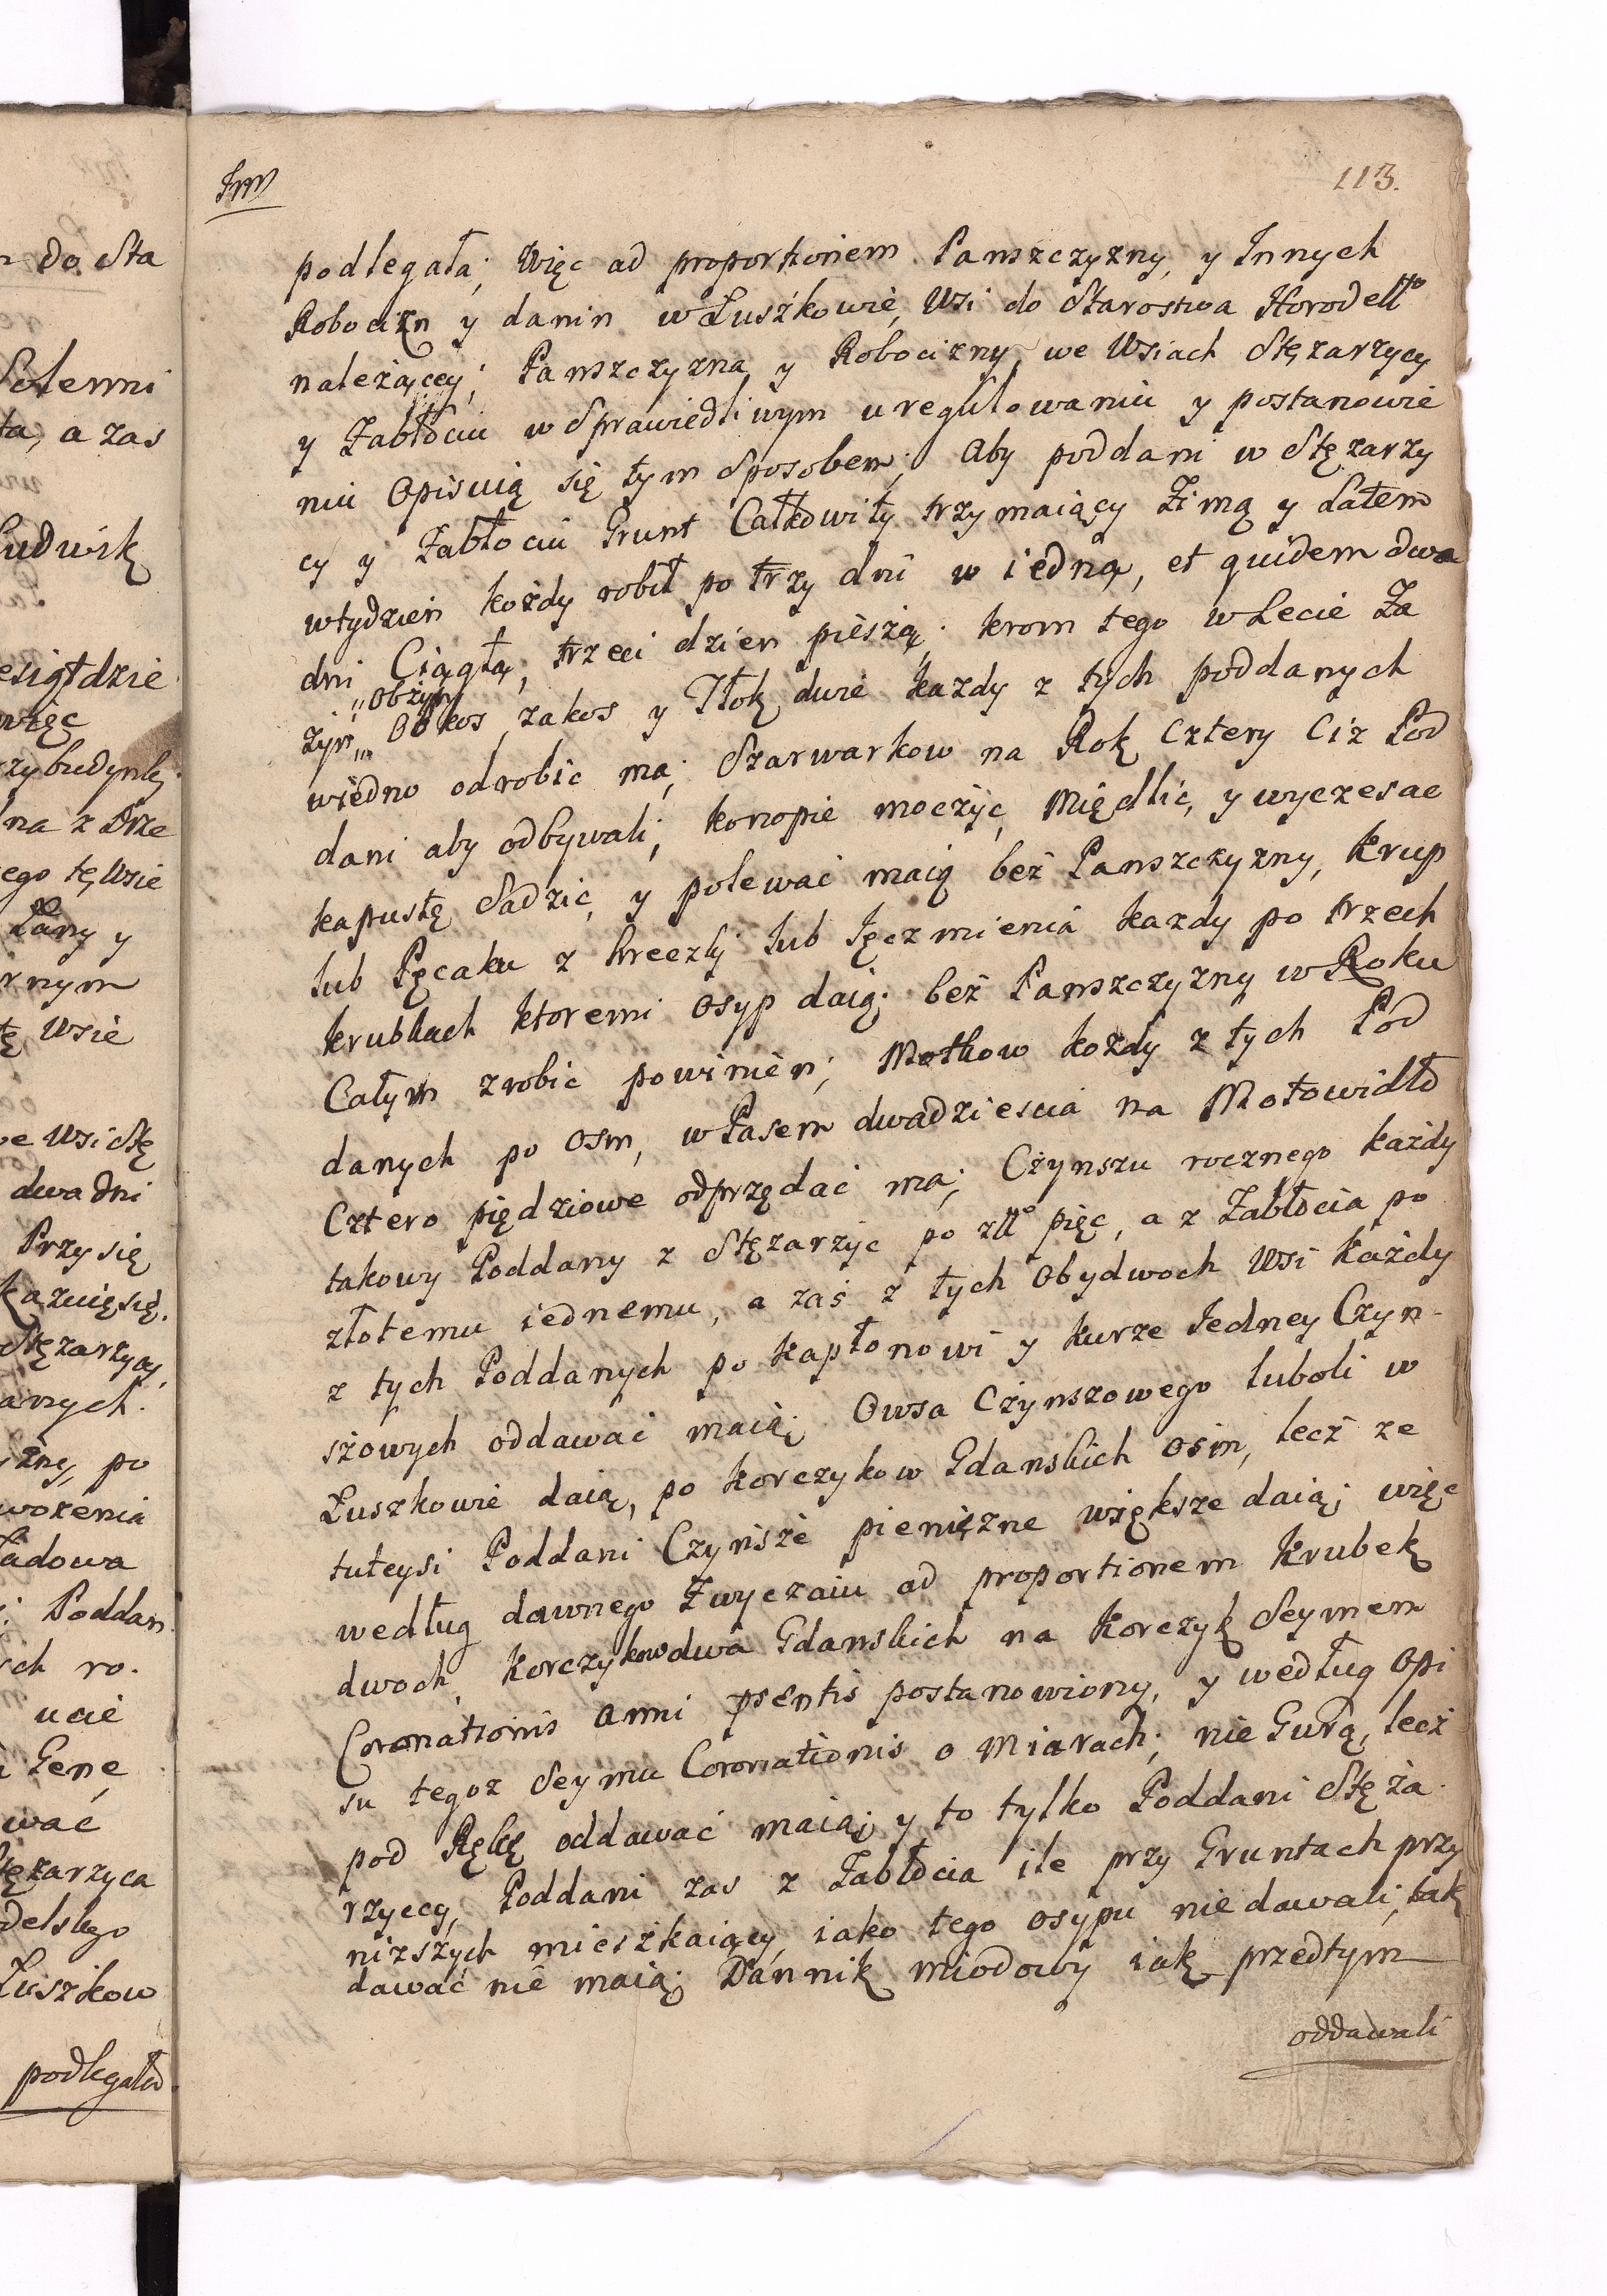 113.
podlegała; Więc ad proportionem Panszczyzny, y Innych
Robocizn y danin w Łuszkowie, Wsi do Starostwa Horodellgo
należącey; Panszczyzna, y Robocizny, we Wsiach Stęzarzycy
y Zabłociu w Sprawiedliwym uregulowaniu y postanowie
niu Opisuią się tym Sposobem; Aby poddani w Stęzarzy
cy y Zabłociu Grunt Całkowity trzymaiący Zimą y Latem
wtydzien kożdy robił po trzy dni w iedną, et quidem dwa
dni Ciągłą, trzeci dzien pieszą; krom tego w Lecie Za
„Obżyn
żyn„ Obkos, zakos y Tłok dwie każdy z tych poddanych
wiedno odrobic ma; Szarwarkow na Rok Cztery Ciz Pod
dani aby odbywali; konopie moczyc, Międlic, y wyczesac
kapustę Sadzic, y polewać maią beż Panszczyzny, krup
lub Pęcaku z hreczki lub Jęczmienia każdy po trzech
krubkach ktoremi osyp daią; beż Panszczyzny w Roku
Całym zrobic powinien; Motkow kożdy z tych Pod
danych po osm, w Pasem dwadziescia na Motowidło
Cztero piędziowe odprzędać ma; Czynszu rocznego każdy
takowy Poddany z Stęzarzyc po złło pięc, a z Zabłocia po
złotemu iednemu, a zaś z tych Obydwoch Wsi każdy
z tych Poddanych po kapłonowi y kurze Jedney Czyn-
szowych oddawać maią; Owsa Czynszowego luboli w
Łuszkowie daią, po korczykow Gdanskich osim, lecż ze
tuteysi Poddani Czynsże pieniężne większe daią; więc
według dawnego Zwyczaiu ad proportionem krubek
dwoch, korczykow dwa Gdanskich na korczyk Seymem
Coronationis anni psentis postanowiony, y według Opi
su tegoz Seymu Coronationis o Miarach; nie Gurą, lecż
pod Rękę oddawać maią; y to tylko Poddani Stęża
rzyccy, Poddani zas z Zabłocia ile przy Gruntach przy
nizszych mieszkaiący, iako tego osypu nie dawali, tak
dawać nie maią; Dannik miodowy iak przedtym
oddawali